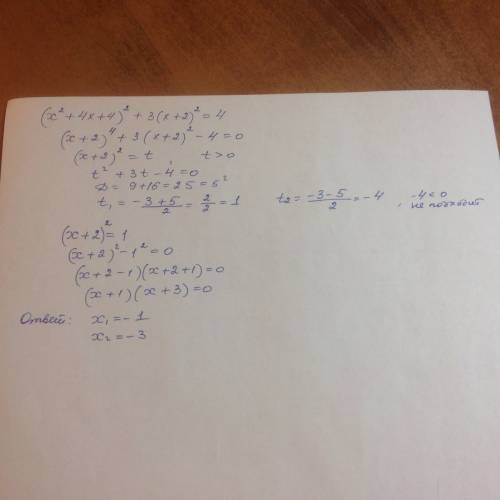 (x² + 4x + 4)² + 3(x+2)² = 4
(x+2)⁴ + 3(x+2)² - 4 = 0
(x+2)² = t, t > 0
t² + 3t - 4 = 0
D = 9 + 16 = 25 = 5²
t₁ = -3+5/2 = 2/2 = 1 t₂ = -3-5/2 = -4, -4 < 0
не подходит
(x+2)² = 1
(x+2)² - 1² = 0
(x+2-1)(x+2+1) = 0
(x+1)(x+3) = 0
Ответ: x₁ = -1
x₂ = -3